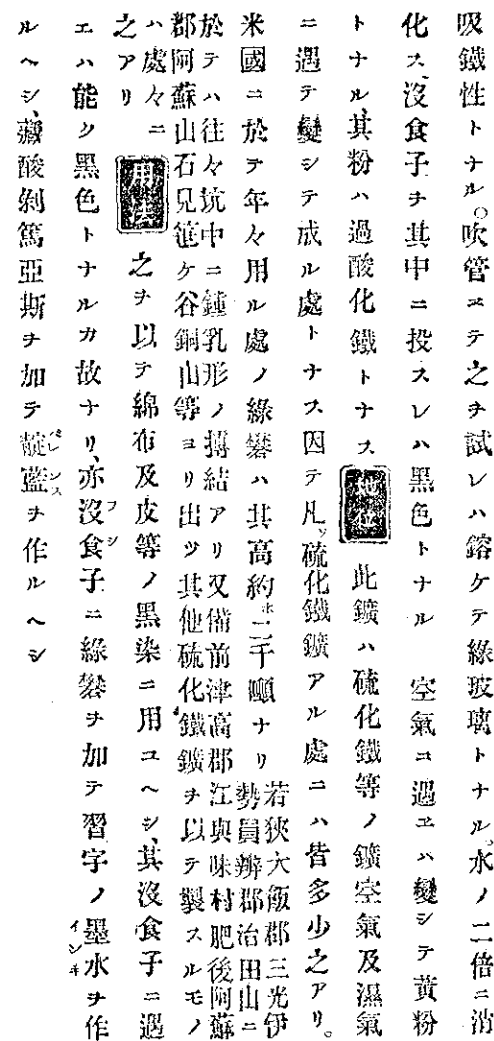 吸鐵性トナル。吹管ヱテ之ヲ試レハ鎔ケテ綠玻璃トナル。水ノ二倍ニ消
化ス、沒食子ヲ其中ニ投スレハ黑色トナル　空氣ニ遇ヱハ變シテ黃粉
トナル、其粉ハ過酸化鐵トナス　此鑛ハ硫化鐵等ノ鑛空氣及濕氣
ニ遇テ變シテ成ル處トナス因テ凡ッ硫化鐵鑛アル處ニハ皆多少之アリ。
米國ニ於テ年々用ル處ノ綠礬ハ其高約ホ二千噸ナリ 若狹大飯郡三光伊
勢員辨郡治田山ニ
於テハ往々坑中ニ鍾乳形ノ摶結アリ又備前津高郡江與味村肥後阿蘇
郡阿蘇山石見笹ケ谷銅山等ヨリ出ツ其他硫化鐵鑛ヲ以テ製スルモノ
ハ處々ニ
之アリ　用法　之ヲ以テ綿布及皮等ノ黑染ニ用ユヘシ、其沒食子ニ遇
エハ能ク黑色トナルカ故ナリ、亦沒食子フシニ綠礬ヲ加テ習字ノ墨水インキヲ作
ルヘシ、藏酸剝篤亞斯ヲ加テ靛藍ベレンスヲ作ルヘシ